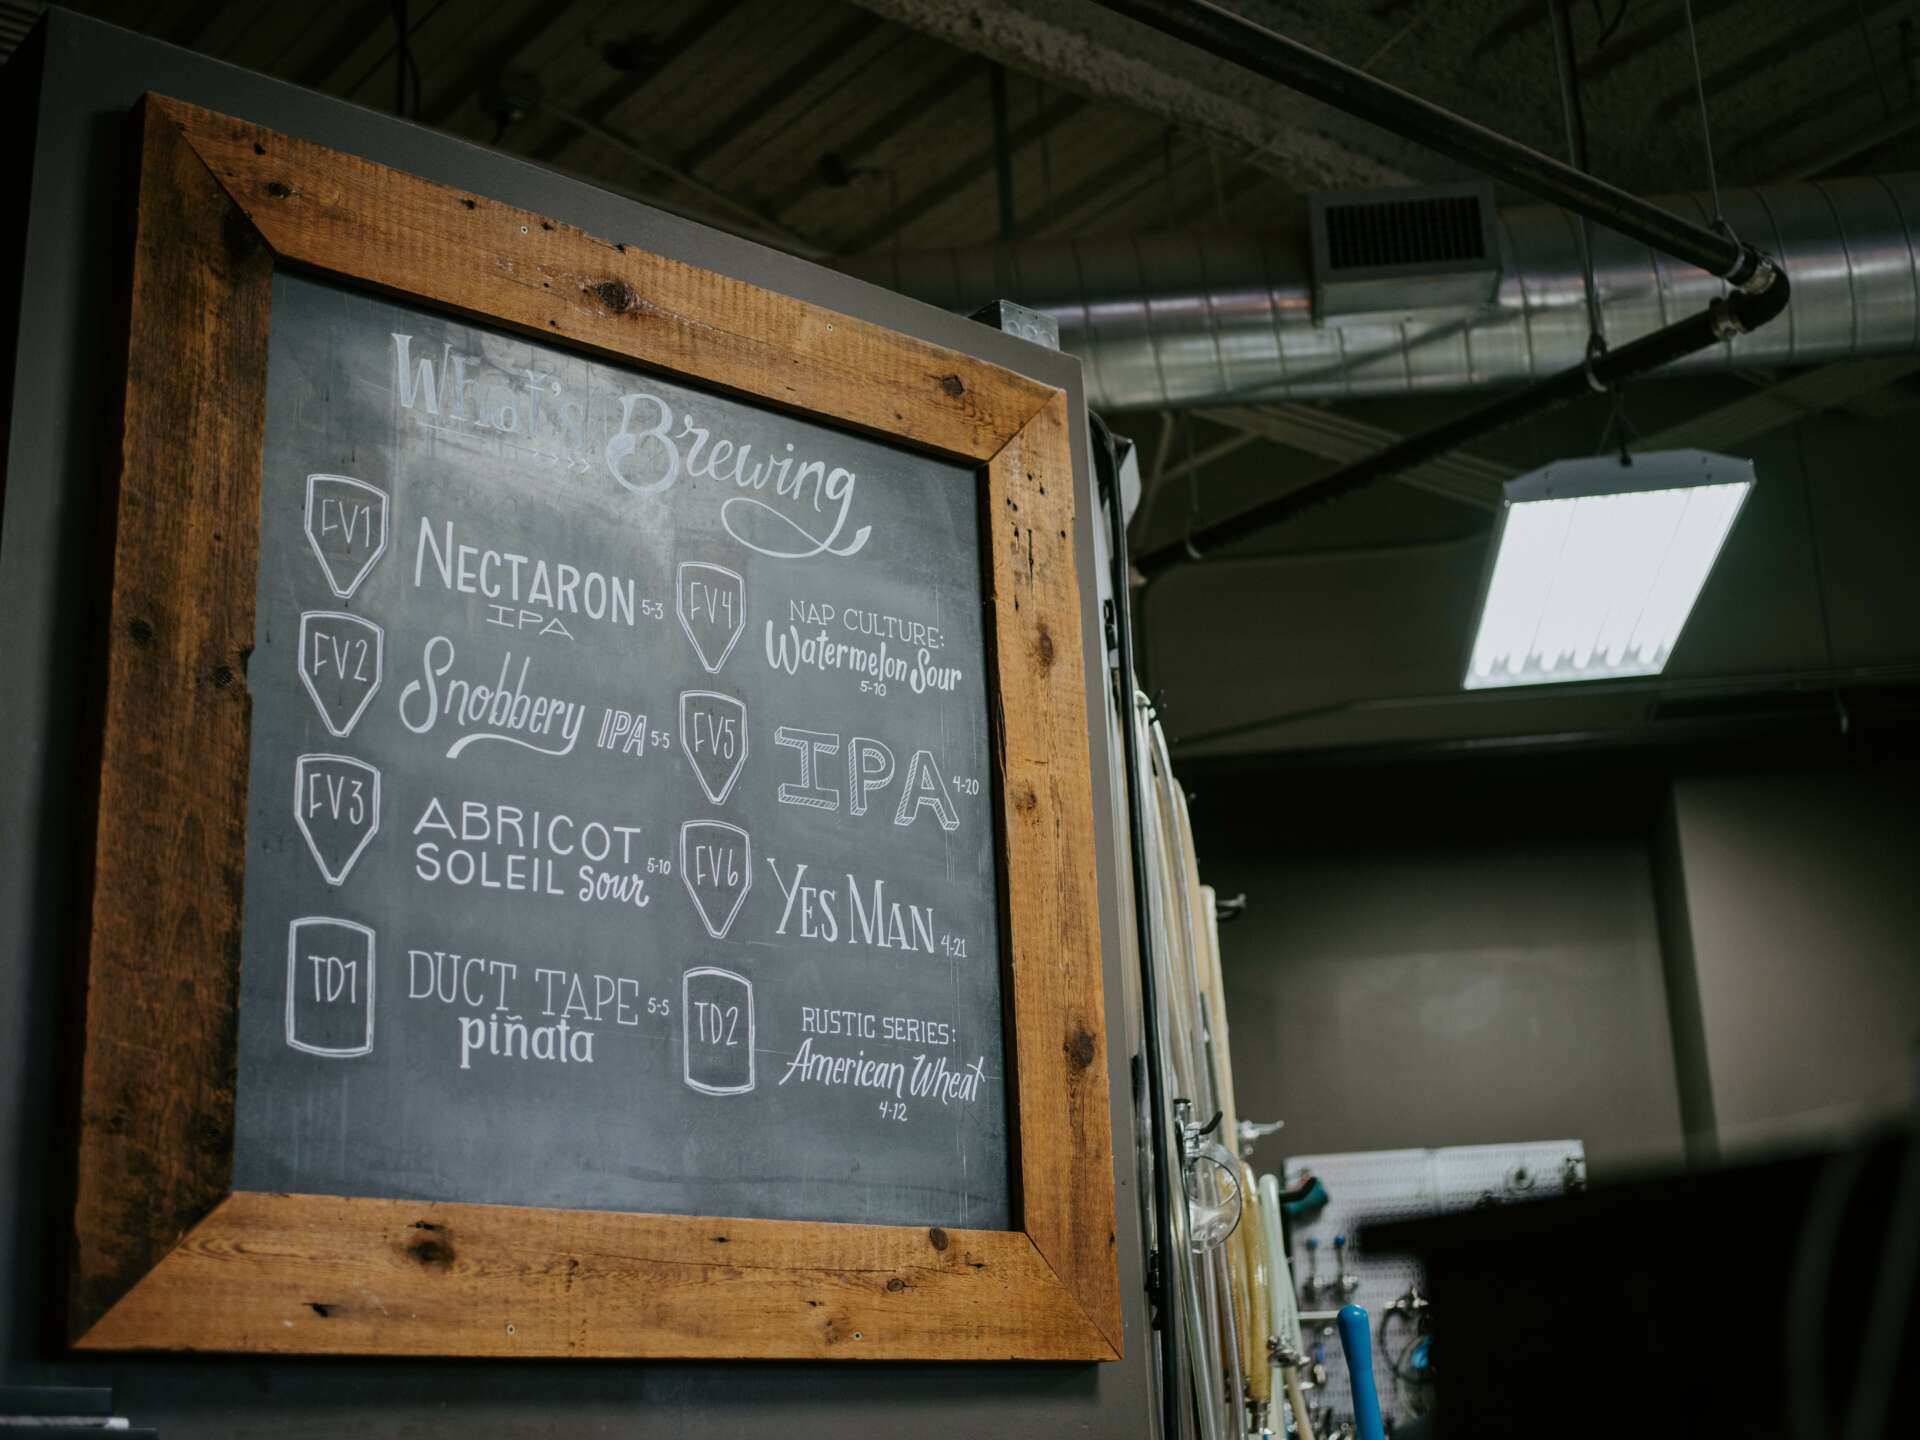 What's Brewing
FV1
NECTARON 5-3
IPA
FV2
Snobbery IPA 5-5
FV3
ABRICOT
SOLEIL Sour 5-10
TD1
DUCT TAPE 5-5
piñata
FV4
NAP CULTURE:
Watermelon Sour
5-10
FV5
IPA 4-20
FV6
YES MAN 4-21
TD2
RUSTIC SERIES:
American Wheat
4-12